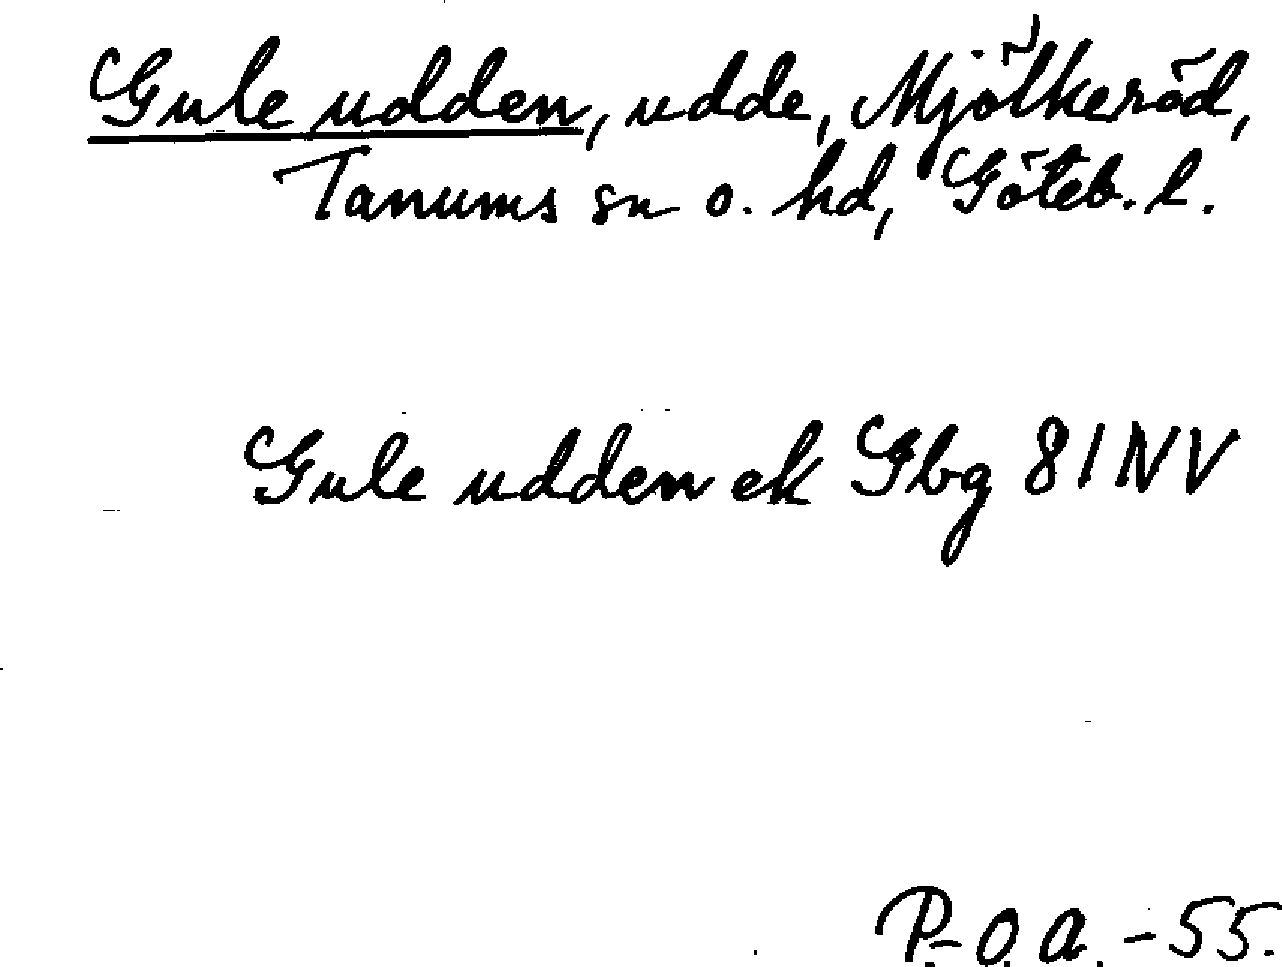 Gule udden, udde, Mjölkeröd,
Tanums sn o. hd, Göteb. l.
Gule udden ek Gbg 81 NV
P.-O. A. -55.